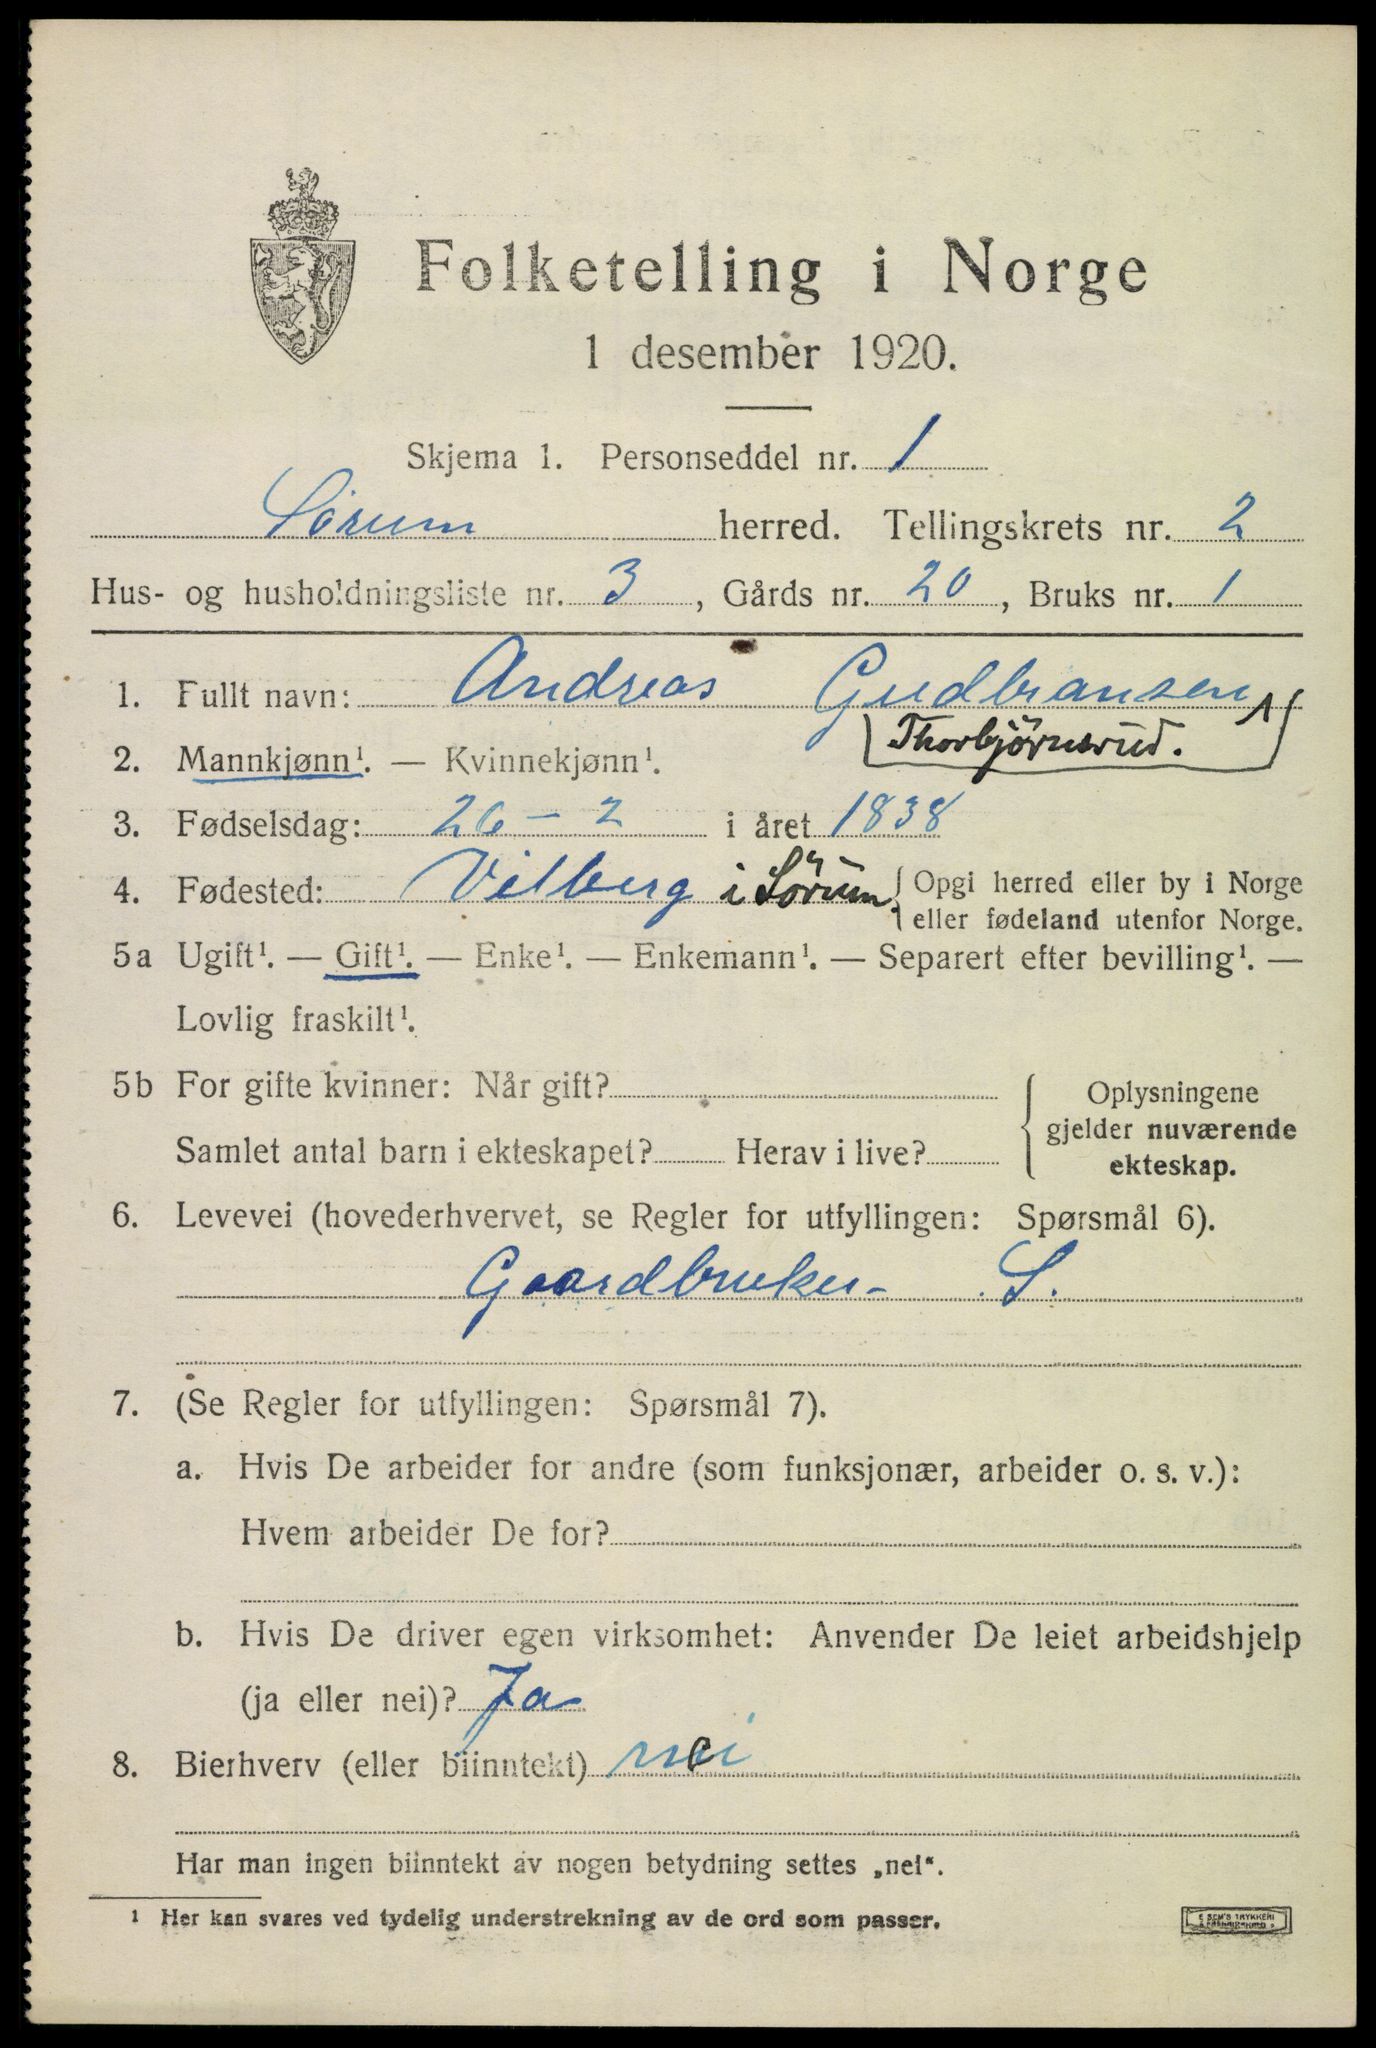 Folketelling i Norge
1 desember 1920.
Skjema 1. Personseddel nr. 1
Sørum herred. Tellingskrets nr. 2
Hus- og husholdningsliste nr. 3, Gårds nr. 20, Bruks nr. 1
1. Fullt navn: Andreas Gudbransen
Thorbjörnsrud.
2. Mannkjønn¹. — Kvinnekjønn¹.
3. Fødselsdag: 26 - 2 i året 1838
4. Fødested: Vilberg i Sörum { Opgi herred eller by i Norge
eller fødeland utenfor Norge.
5a Ugift¹. — Gift¹. — Enke¹. — Enkemann¹. — Separert efter bevilling¹. —
Lovlig fraskilt¹.
5b For gifte kvinner: Når gift?
Samlet antal barn i ekteskapet? Herav i live?
Oplysningene
gjelder nuværende
ekteskap.
6. Levevei (hovederhvervet, se Regler for utfyllingen: Spørsmål 6).
Gaardbruker - S.
7. (Se Regler for utfyllingen: Spørsmål 7).
a. Hvis De arbeider for andre (som funksjonær, arbeider o. s. v.):
Hvem arbeider De for?
b. Hvis De driver egen virksomhet: Anvender De leiet arbeidshjelp
(ja eller nei)? Ja
8. Bierhverv (eller biinntekt) nei
Har man ingen biinntekt av nogen betydning settes „nei“.
¹ Her kan svares ved tydelig understrekning av de ord som passer.